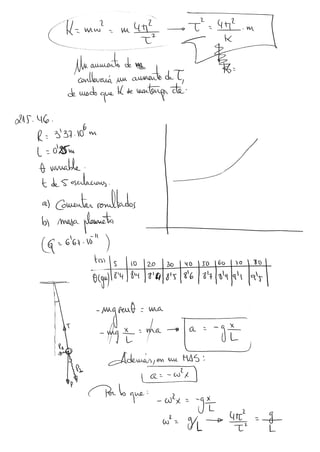 K = mω² = m 4π²/T² → T² = 4π²/K · m
Un aumento de m
conllevaría un aumento de T,
de modo que K se mantenga cte.
215.46.
R = 3'37·10⁶ m
L = 0'25 m
θ variable.
t de 5 oscilaciones.
a) Comentar resultados
b) masa planeta
(G = 6'67·10⁻¹¹)
t(s) 5 10 20 30 40 50 60 70 80
θ(gra) 8'4 8'4 8'4 8'5 8'6 8'7 8'9 9'1 9'5
- mg senθ = ma
- mg x/L = ma → a = -g x/L
Además, en un MAS:
a = -ω²x
Por lo que:
- ω²x = -g x/L
ω² = g/L → 4π²/T² = g/L
T
P